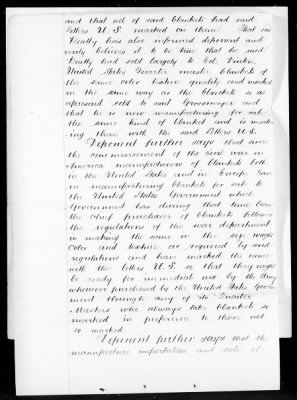 and that all of said blankets had said
letters U.S. marked on them. That said
Beatty has also informed deponent and
verily believes it to be true that he said
Beatty had sold largely to Col. Vinton
United States Quarter master blankets of
the same color texture quality and marked
in the same way as the blankets so as
aforesaid sold to said Grossmayer and
that he is now manufacturing for sale
the same kind of blanket and is mark-
ing them with the said letters U.S.
Deponent further says that since
the commencement of the civil war in
America manufacturers of blankets both
in the United States and in Europe have
in manufacturing blankets for sale to
the United States Government which
Government has during that time been
the chief purchaser of blankets followed
the regulations of the war department
in making the same in the size weight
Color and texture as required by said
regulations and have marked the same
with the letters U.S. so that they might
be ready for immediate use by the Army
whenever purchased by the United States Govern
ment through any of its Quarter
Masters who always take blankets so
marked in preference to those not
so marked.
Deponent further says that the
manufacture importation and sale of